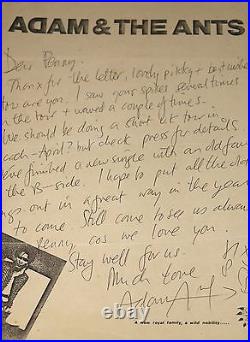 ADAM & THE ANTS
Dear Penny,
Thanx for the letter, lovely pikky + best wishes
you are you. I saw your spikes several times
on the tour + waved a couple of times.
We should be doing a short UK tour in
March-April? but check press for details
we've finished a new single with an old fave
on the B-side. I hope to put all the old
songs out in a great way in the year
to come. Still come to see us always
Penny cos we love you.
Stay well for us.
Much love
Adam Ant
A new royal family, a wild nobility.....